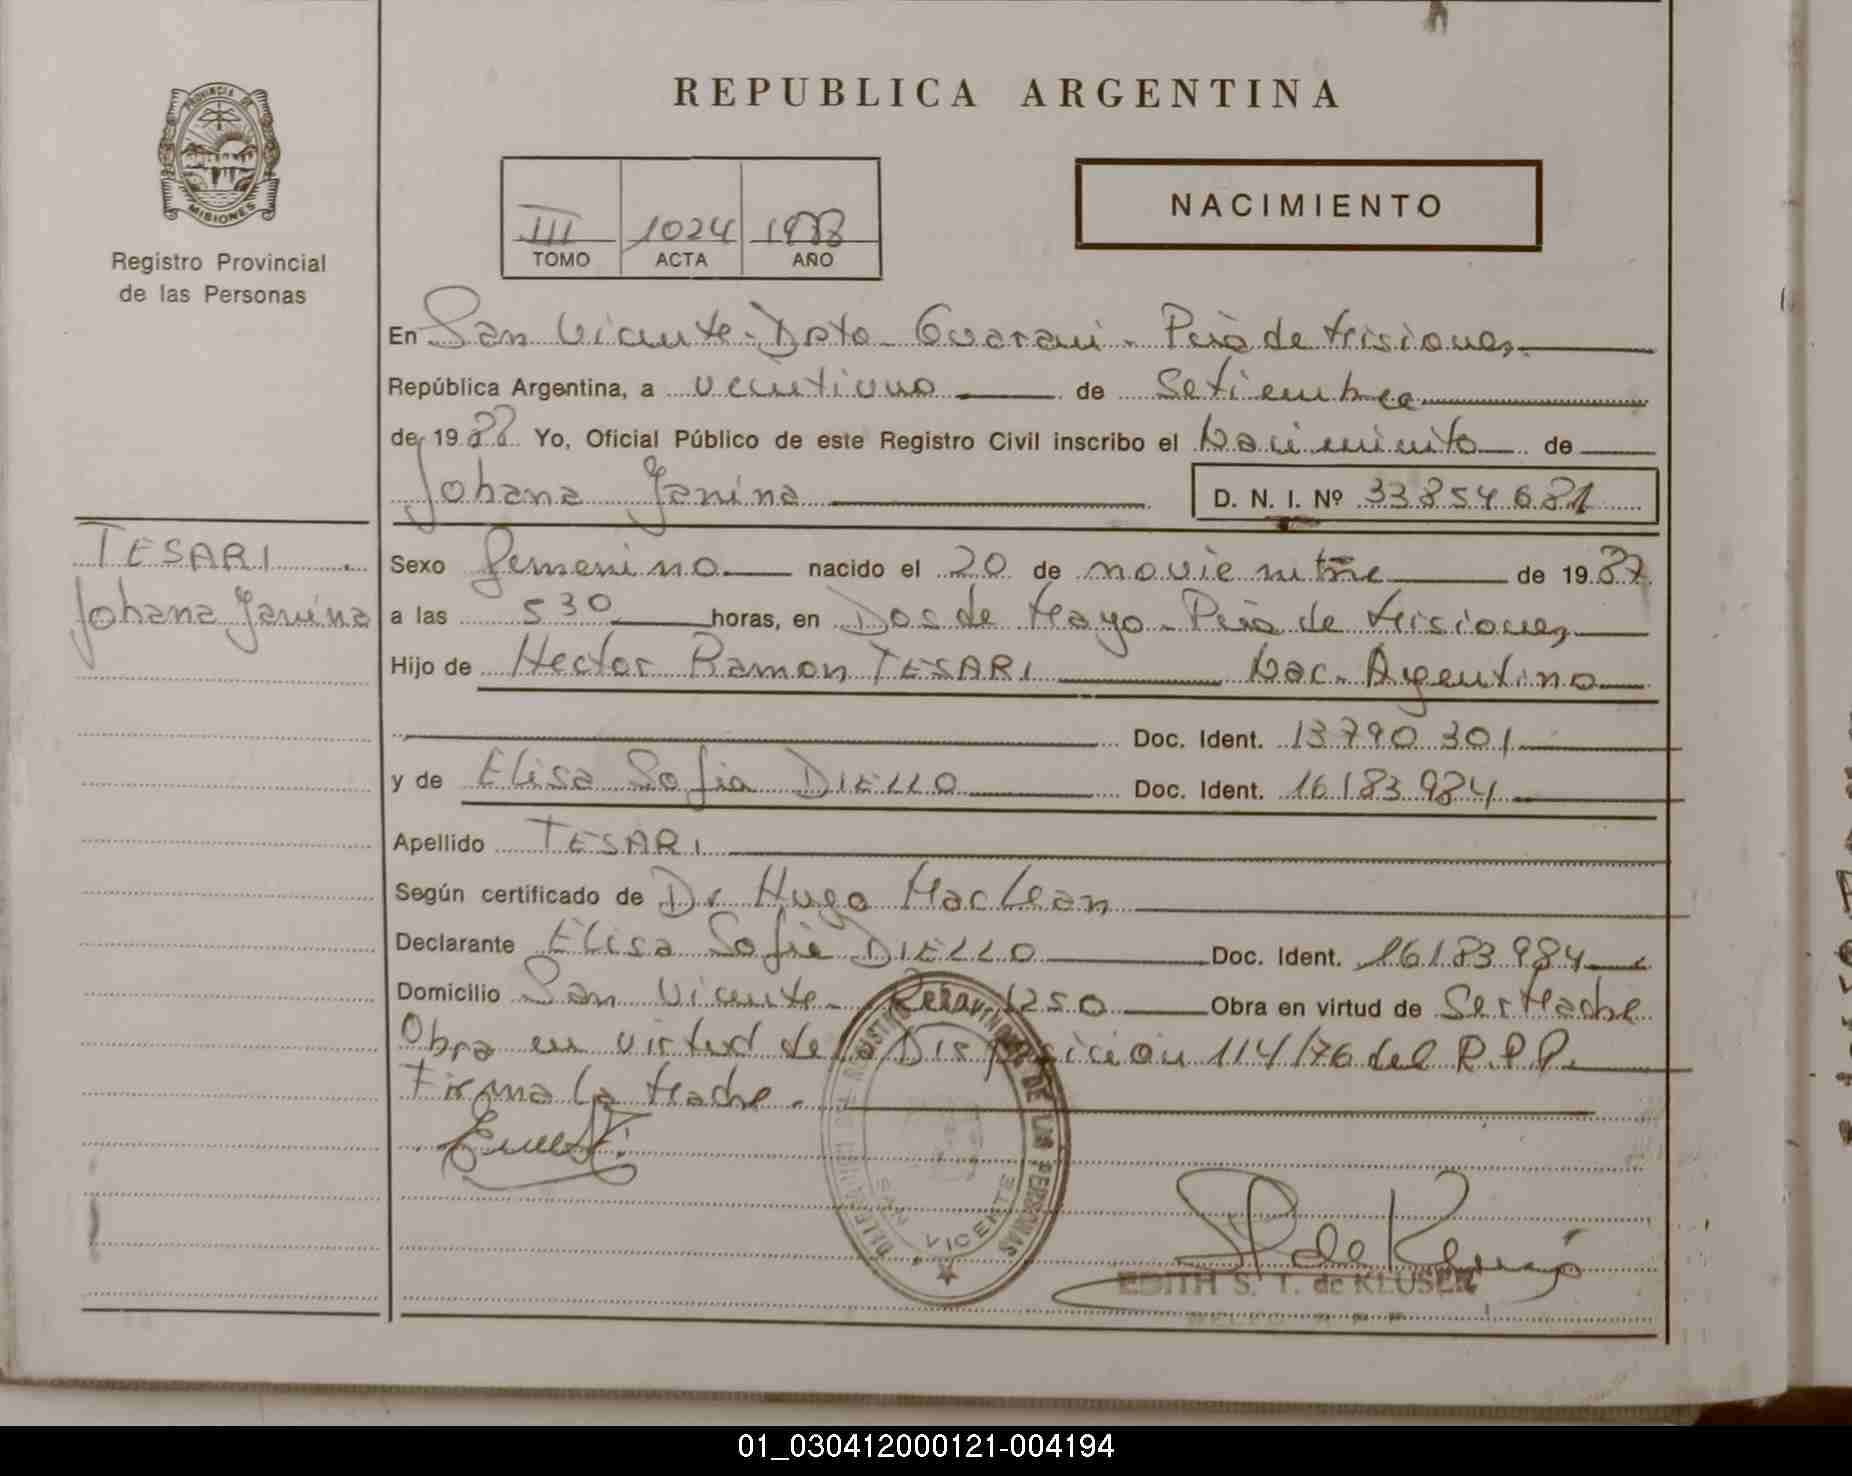 REPUBLICA ARGENTINA
PROVINCIA DE
MISIONES
Registro Provincial
de las Personas
III 1024 1988
TOMO ACTA AÑO
NACIMIENTO
En San Vicente - Dpto Guarani - Pcia de Misiones
República Argentina, a veintiuno de Setiembre
de 1988 Yo, Oficial Público de este Registro Civil inscribo el Nacimiento de
Johana Janina D. N. I. Nº 33854681
TESARI
Johana Janina
Sexo femenino nacido el 20 de noviembre de 1987
a las 530 horas, en Dos de Mayo - Pcia de Misiones
Hijo de Hector Ramon TESARI Nac. Argentino
Doc. Ident. 13790301
y de Elisa Sofia DIELLO Doc. Ident. 16183984
Apellido TESARI
Según certificado de Dr Hugo MacLean
Declarante Elisa Sofia DIELLO Doc. Ident. 16183984
Domicilio San Vicente - 1250 Obra en virtud de Ser Madre
Obra en virtud de Disposición 114/76 del R.P.P.
Firma la Madre.
DELEGACION REGISTRO PROVINCIAL DE LAS PERSONAS
SAN VICENTE
EDITH S. T. de KLUSER
01_030412000121-004194